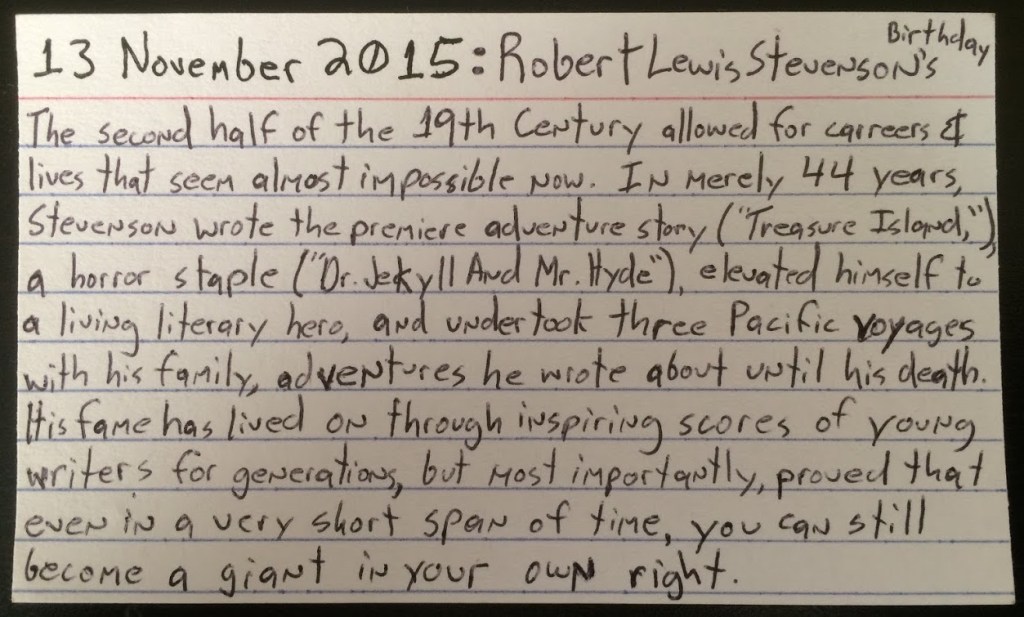 13 November 2015: Robert Lewis Stevenson's Birthday
The second half of the 19th Century allowed for carreers &
lives that seem almost impossible now. In merely 44 years,
Stevenson wrote the premiere adventure story ("Treasure Island,"),
a horror staple ("Dr. Jekyll And Mr. Hyde"), elevated himself to
a living literary hero, and undertook three Pacific voyages
with his family, adventures he wrote about until his death.
His fame has lived on through inspiring scores of young
writers for generations, but most importantly, proved that
even in a very short span of time, you can still
become a giant in your own right.